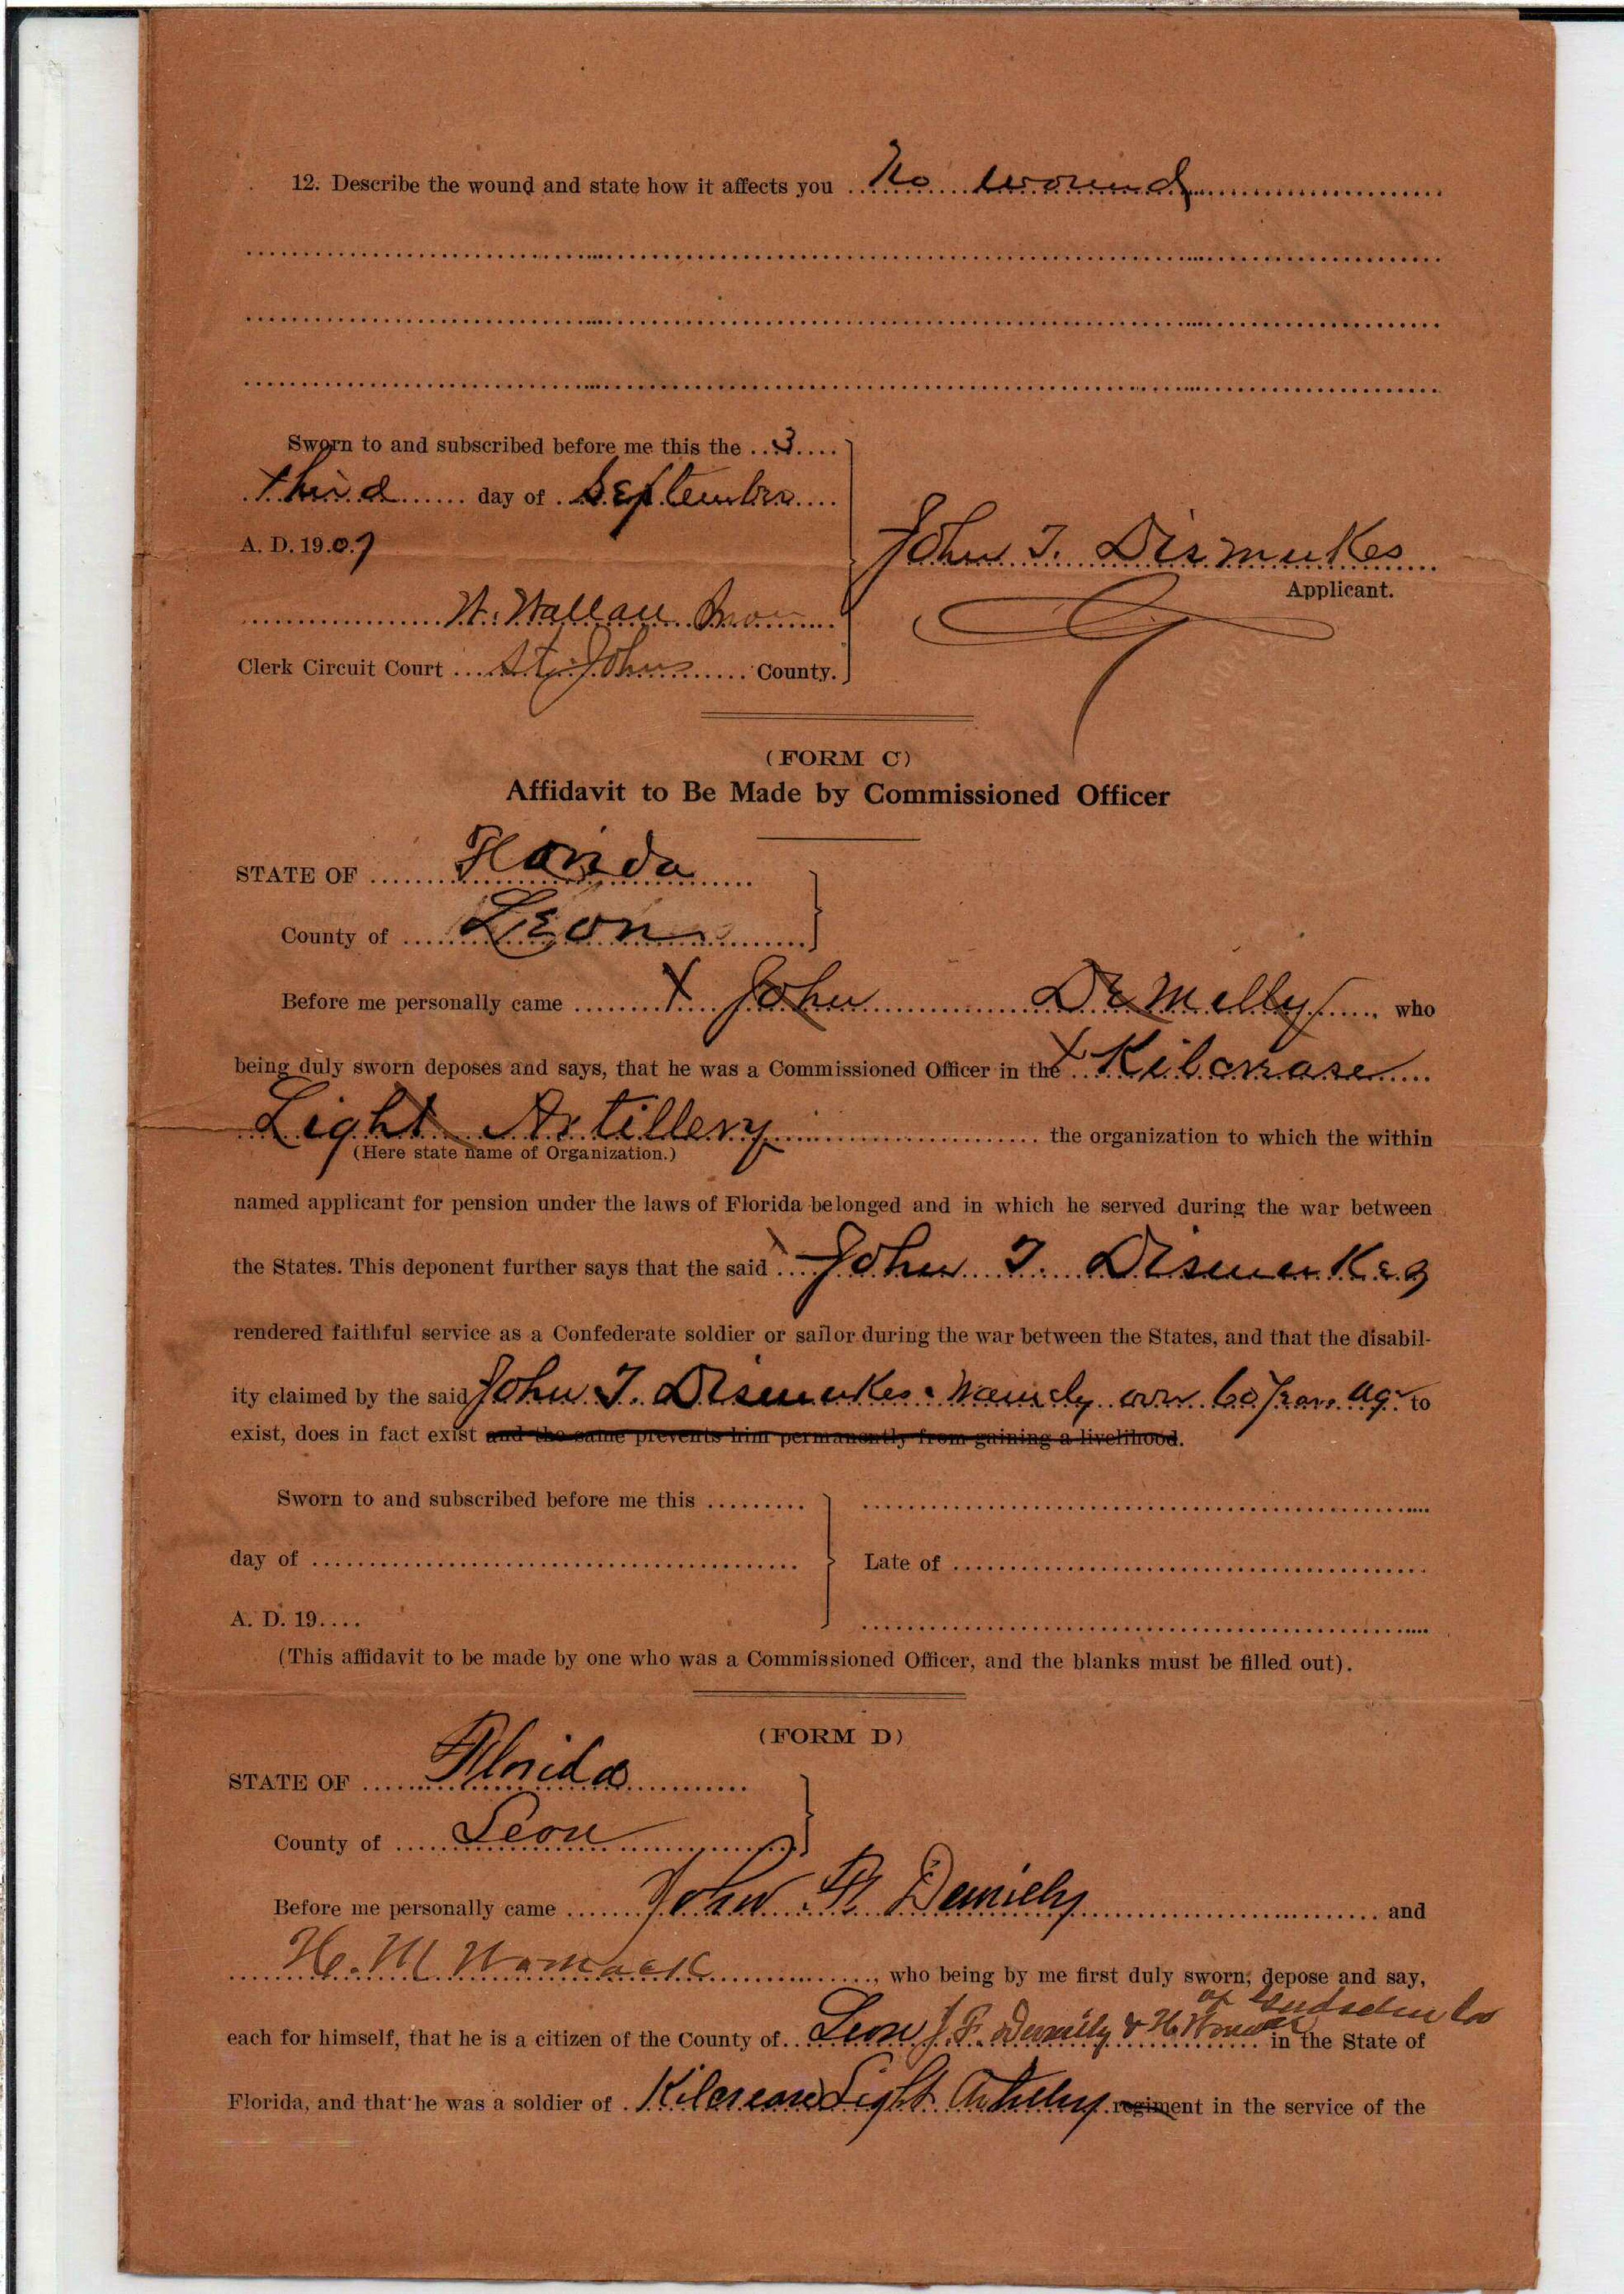 12. Describe the wound and state how it affects you No wound
Sworn to and subscribed before me this the 3
third day of September
A. D. 1907
John T. Dismukes
Applicant.
W. Wallace
Clerk Circuit Court St. Johns County.
(FORM C)
Affidavit to Be Made by Commissioned Officer
STATE OF Florida
County of Leon
Before me personally came X John DeMilly who
being duly sworn deposes and says, that he was a Commissioned Officer in the X Kilcrease
Light Artillery the organization to which the within
(Here state name of Organization.)
named applicant for pension under the laws of Florida belonged and in which he served during the war between
the States. This deponent further says that the said John T. Dismukes
rendered faithful service as a Confederate soldier or sailor during the war between the States, and that the disabil-
ity claimed by the said John T. Dismukes. Namely over 60 years age to
exist, does in fact exist and the same prevents him permanently from gaining a livelihood.
Sworn to and subscribed before me this
day of
Late of
A. D. 19
(This affidavit to be made by one who was a Commissioned Officer, and the blanks must be filled out).
(FORM D)
STATE OF Florida
County of Leon
Before me personally came John F. Demilly and
H. M. Womack, who being by me first duly sworn, depose and say,
of Gadsden Co
each for himself, that he is a citizen of the County of Leon J. F. Demilly & H. Womack in the State of
Florida, and that he was a soldier of Kilcrease Light Artillery regiment in the service of the